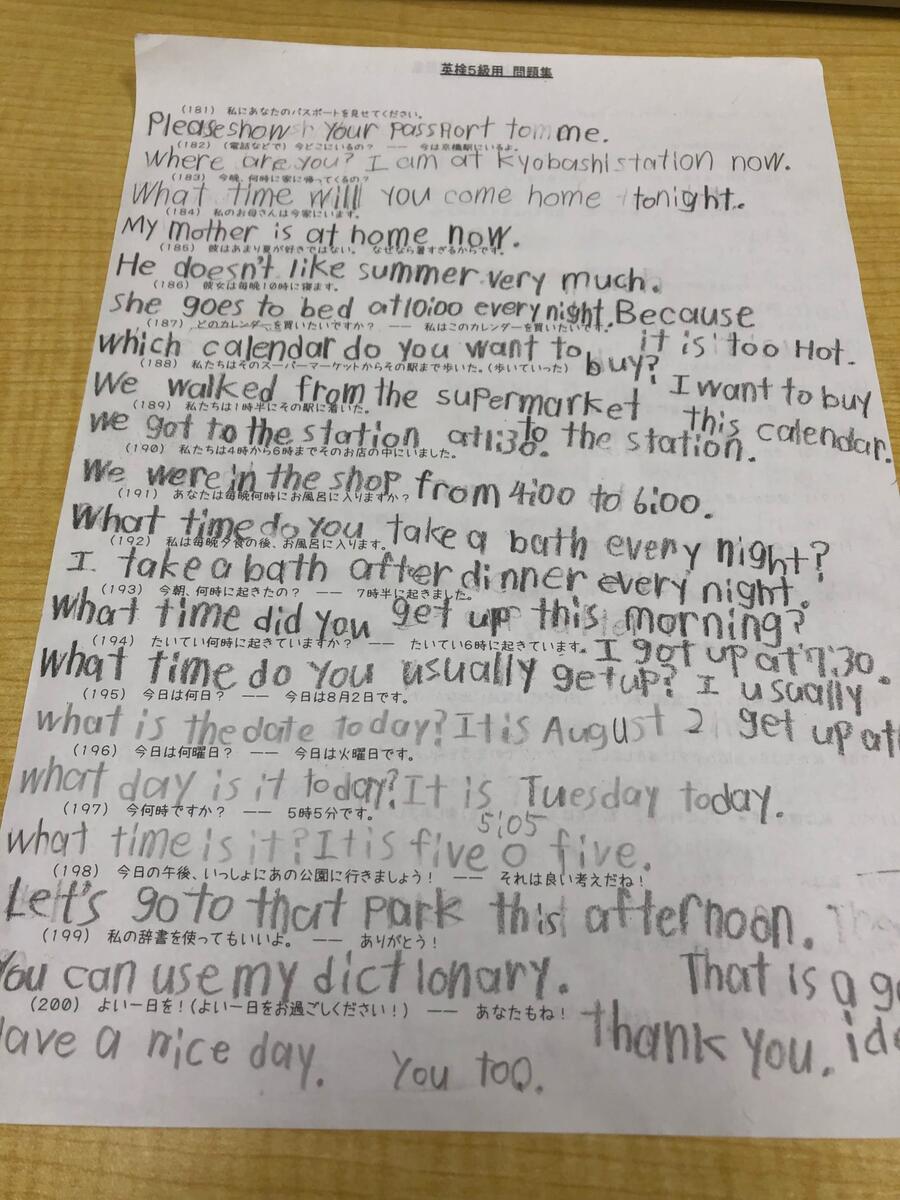 英検5級用 問題集
(181) 私にあなたのパスポートを見せてください。
Please show your passport to me.
(182) (電話などで) 今どこにいるの? —— 今は京橋駅にいるよ。
Where are you? I am at Kyobashi station now.
(183) 今晩、何時に家に帰ってくるの?
What time will you come home tonight.
(184) 私のお母さんは今家にいます。
My mother is at home now.
(185) 彼はあまり夏が好きではない。 なぜなら暑すぎるからです。
He doesn't like summer very much.
(186) 彼女は毎晩10時に寝ます。
she goes to bed at 10:00 every night. Because
it is too Hot.
(187) どのカレンダーを買いたいですか? —— 私はこのカレンダーを買いたいです。
which calendar do you want to buy?
I want to buy this calendar.
(188) 私たちはそのスーパーマーケットからその駅まで歩いた。(歩いていった)
We walked from the supermarket
to the station.
(189) 私たちは1時半にその駅に着いた。
we got to the station at 1:30.
(190) 私たちは4時から6時までそのお店の中にいました。
We were in the shop from 4:00 to 6:00.
(191) あなたは毎晩何時にお風呂に入りますか?
What time do you take a bath every night?
(192) 私は毎晩夕食の後、お風呂に入ります。
I take a bath after dinner every night.
(193) 今朝、何時に起きたの? —— 7時半に起きました。
what time did you get up this morning?
I got up at 7:30.
(194) たいてい何時に起きていますか? —— たいてい6時に起きています。
what time do you usually get up? I usually
get up at
(195) 今日は何日? —— 今日は8月2日です。
what is the date today? It is August 2
(196) 今日は何曜日? —— 今日は火曜日です。
what day is it today? It is Tuesday today.
(197) 今何時ですか? —— 5時5分です。
5:05
what time is it? It is five o five.
(198) 今日の午後、いっしょにあの公園に行きましょう! —— それは良い考えだね!
Let's go to that park this afternoon.
That is a
(199) 私の辞書を使ってもいいよ。 —— ありがとう!
You can use my dictionary.
Thank you.
(200) よい一日を!(よい一日をお過ごしください!) —— あなたもね!
Have a nice day. You too.